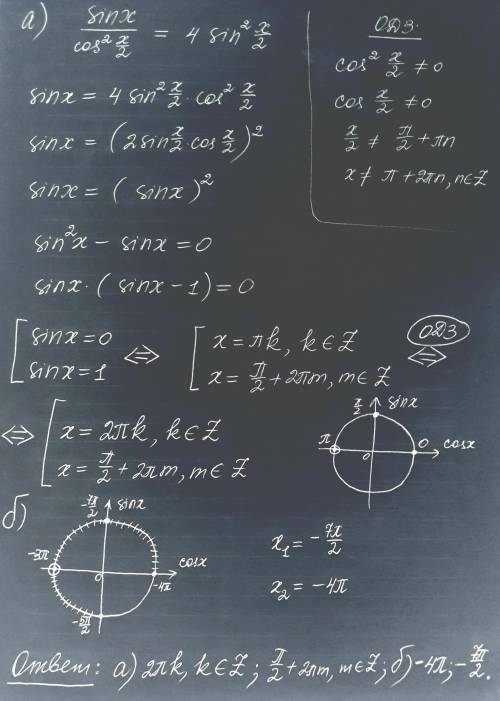 а) sinx / cos² x/2 = 4 sin² x/2
ОДЗ:
cos² x/2 ≠ 0
cos x/2 ≠ 0
x/2 ≠ π/2 + πn
x ≠ π + 2πn, n∈Z
sinx = 4 sin² x/2 · cos² x/2
sinx = (2sin x/2 · cos x/2)²
sinx = ( sinx )²
sin²x − sinx = 0
sinx · ( sinx − 1) = 0
[ sinx = 0
sinx = 1
⇔ [ x = πk, k∈Z
x = π/2 + 2πm, m∈Z
ОДЗ
⇔
⇔ [ x = 2πk, k∈Z
x = π/2 + 2πm, m∈Z
π/2 sinx
π 0 0 cosx
б)
-7π/2 sinx
-3π 0 cosx
-4π
-5π/2
x₁ = -7π/2
x₂ = -4π
Ответ: а) 2πk, k∈Z; π/2 + 2πm, m∈Z; б) -4π; -7π/2.